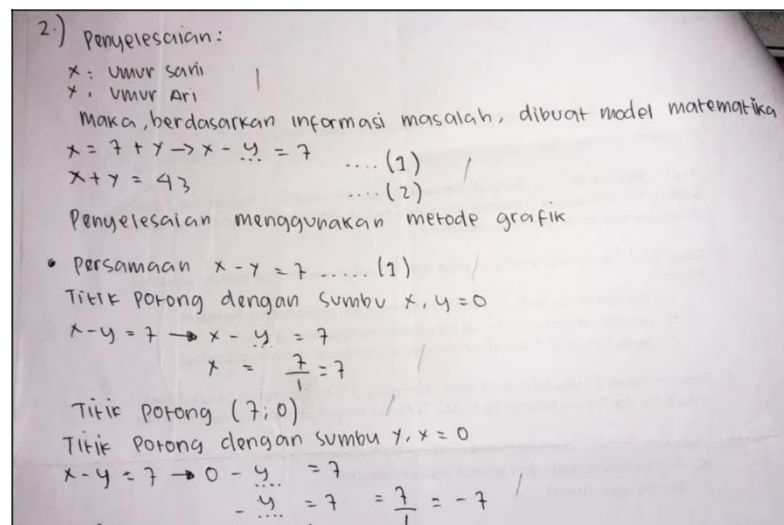 2.) Penyelesaian:
x : Umur Sani
Y : Umur Ari
Maka, berdasarkan informasi masalah, dibuat model matematika
x = 7 + Y → x - y = 7 .... (1)
x + Y = 43 .... (2)
Penyelesaian menggunakan metode grafik
• Persamaan x - Y = 7 ..... (1)
Titik Potong dengan sumbu x, y = 0
x - y = 7 → x - y = 7
x = 7/1 = 7
Titik Potong (7;0)
Titik Potong dengan sumbu Y, x = 0
x - y = 7 → 0 - y = 7
- y = 7 = 7/1 = -7